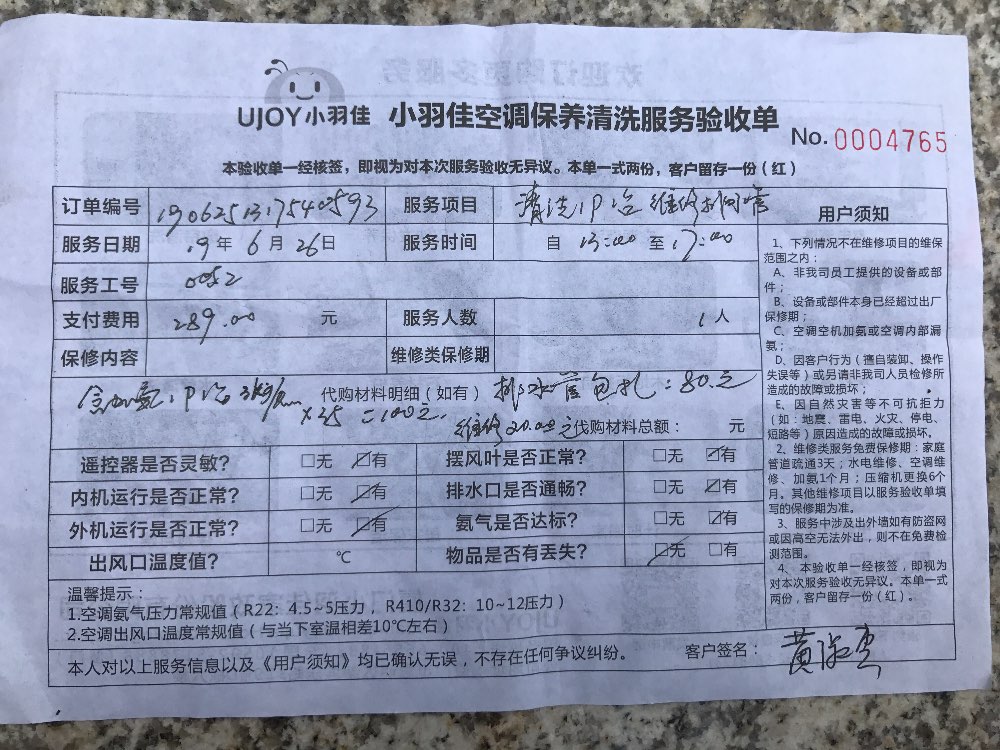 UJOY小羽佳 小羽佳空调保养清洗服务验收单
No. 0004765
本验收单一经核签，即视为对本次服务验收无异议。本单一式两份，客户留存一份（红）
订单编号 1906251317540593 服务项目 清洗1P 维修
服务日期 19年6月26日 服务时间 自 13:00 至 17:00
服务工号 0052
支付费用 289.00 元 服务人数 1人
保修内容 维修类保修期
代购材料明细（如有） 排水管包扎：80元
×25 =100元.
维修20.00元 代购材料总额： 元
遥控器是否灵敏？ □无 ☑有 摆风叶是否正常？ □无 ☑有
内机运行是否正常？ □无 ☑有 排水口是否通畅？ □无 ☑有
外机运行是否正常？ □无 ☑有 氨气是否达标？ □无 ☑有
出风口温度值？ ℃ 物品是否有丢失？ ☑无 □有
温馨提示：
1.空调氨气压力常规值（R22：4.5~5压力，R410/R32：10~12压力）
2.空调出风口温度常规值（与当下室温相差10℃左右）
本人对以上服务信息以及《用户须知》均已确认无误，不存在任何争议纠纷。 客户签名：
用户须知
1、下列情况不在维修项目的维保
范围之内：
A、非我司员工提供的设备或部
件；
B、设备或部件本身已经超过出厂
保修期；
C、空调空机加氨或空调内部漏
氨；
D、因客户行为（擅自装卸、操作
失误等）或另请非我司人员检修所
造成的故障或损坏；
E、因自然灾害等不可抗拒力
（如：地震、雷电、火灾、停电、
短路等）原因造成的故障或损坏。
2、维修类服务免费保修期：家庭
管道疏通3天；水电维修、空调维
修、加氨1个月；压缩机更换6个
月。其他维修项目以服务验收单填
写的保修期为准。
3、服务中涉及出外墙如有防盗网
或因高空无法外出，则不在免费检
测范围。
4、本验收单一经核签，即视为
对本次服务验收无异议。本单一式
两份，客户留存一份（红）。